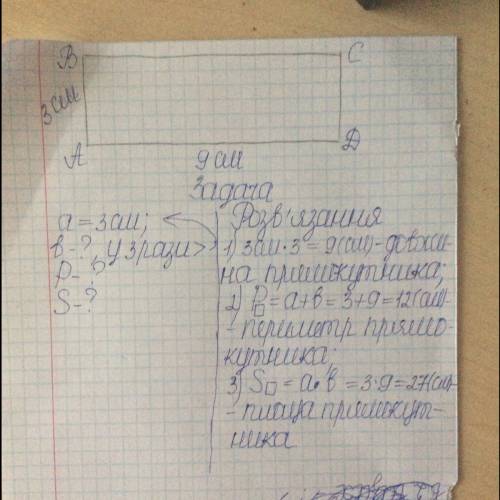 B C
3 см
A D
9 см
Задача
a = 3 см;
b - ?, у 3 рази >
P - ?
S - ?
Розв'язання
1) 3 см · 3 = 9 (см) - довжи-
на прямокутника;
2) P□ = a + b = 3 + 9 = 12 (см)-
- периметр прямо-
кутника;
3) S□ = a · b = 3 · 9 = 27 (см)-
- площа прямокут-
ника